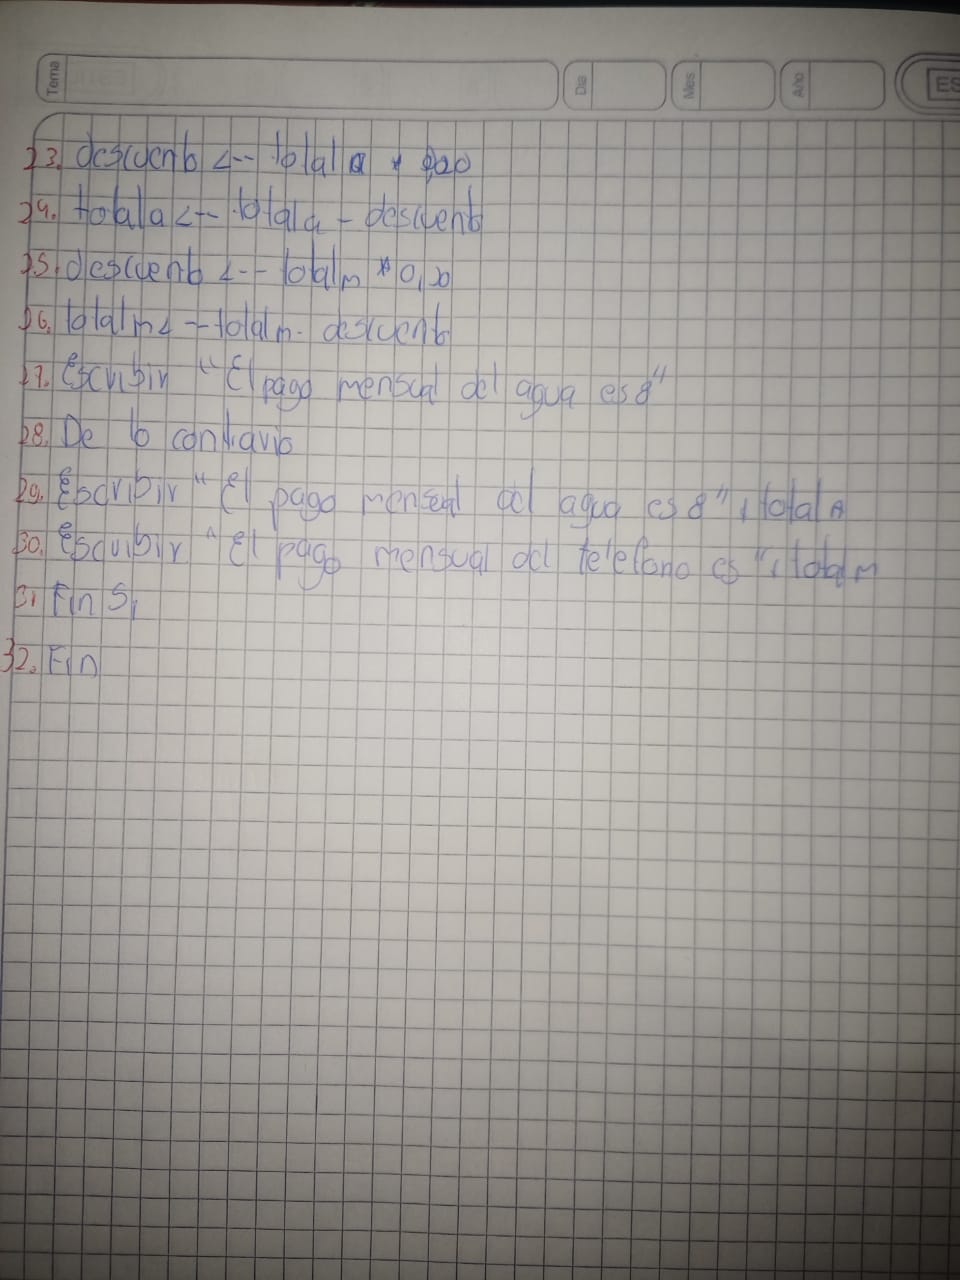 Tema Dia Mes Año ES
23. descuento <-- totala * 0,20
24. totala <-- totala - descuento
25. descuento <-- totalm * 0,20
26. totalm <-- totalm - descuento
27. Escribir "El pago mensual del agua es 8"
28. De lo contrario
29. Escribir "El pago mensual del agua es 8", totala
30. Escribir "El pago mensual del telefono es", totalm
31 Fin Si
32. Fin